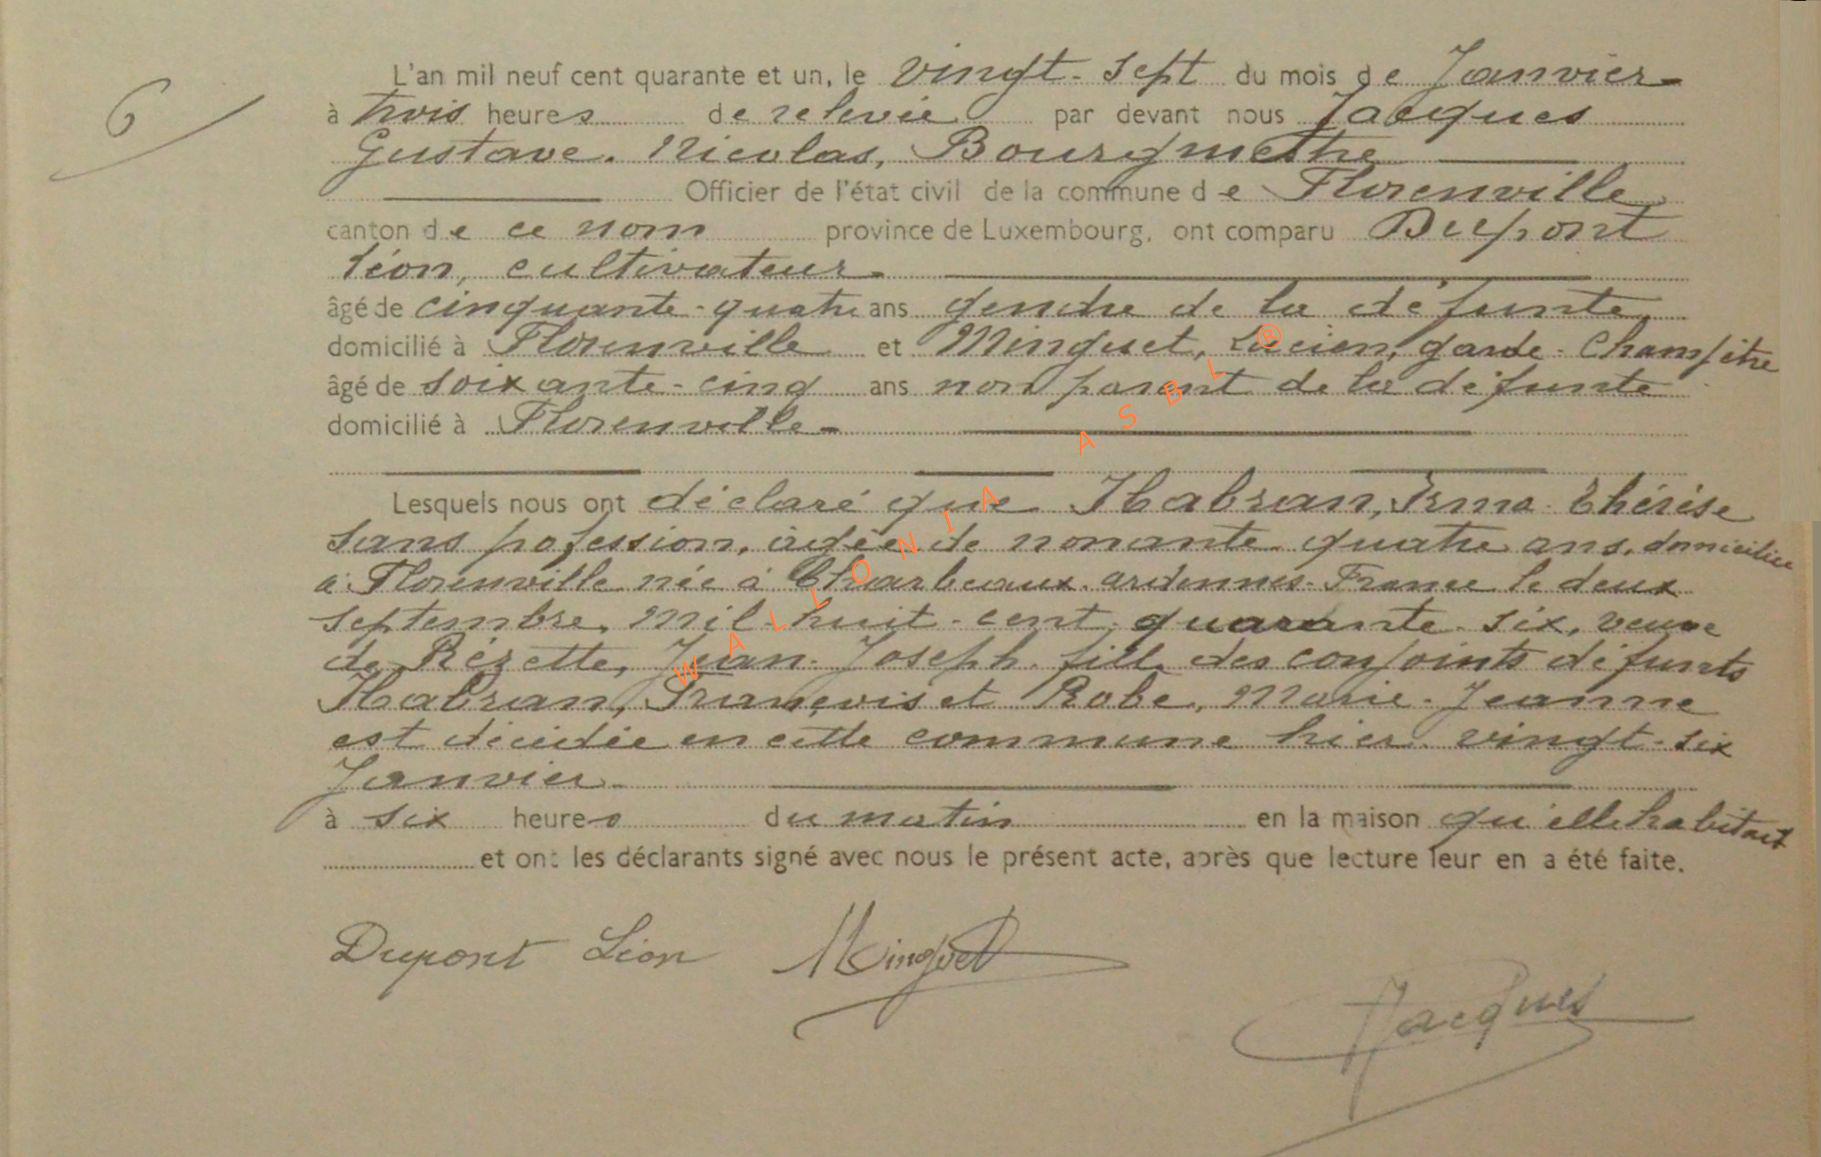 6
L'an mil neuf cent quarante et un, le vingt-sept du mois de Janvier
à trois heures de relevée par devant nous Jacques
Gustave. Nicolas, Bourgmestre
Officier de l'état civil de la commune de Florenville
canton de ce nom province de Luxembourg, ont comparu Dupont
Léon, cultivateur
âgé de cinquante-quatre ans gendre de la défunte,
domicilié à Florenville et Minguet, Lucien, garde-Champêtre
âgé de soixante-cinq ans non parent de la défunte
domicilié à Florenville
Lesquels nous ont déclaré que Habran, Irma-Thérèse
sans pofession, âgée de nonante-quatre ans, domiciliée
à Florenville née à Charbeaux-ardennes-France le deux
septembre, mil-huit-cent-quarante-six, veuve
de Rézette, Jean-Joseph, fille des conjoints défunts
Habran, François et Robe, Marie-Jeanne
est décédée en cette commune hier vingt-six
Janvier
à six heures du matin en la maison qu'elle habitait
et ont les déclarants signé avec nous le présent acte, après que lecture leur en a été faite.
Dupont Léon Minguet
Jacques
WALLONIA ASBL ®